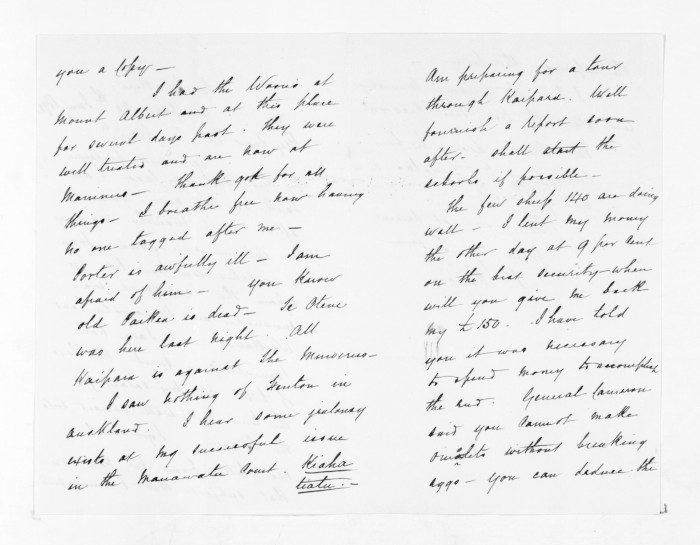 you a copy —
I had the Woons at
Mount Albert and at this place
for several days past. They were
well treated and are now at
Mariners — Thank god for all
things — I breathe free now having
no one tagged after me —
Porter is awfully ill — I am
afraid of him — you know
old Paikea is dead — Te Otene
was here last night. All
Kaipara is against the
I saw nothing of Fenton in
Auckland. I hear some jealousy
exists at my successful issue
in the Manawatu Court. Kiaha
tiatu. —
Am preparing for a tour
through Kaipara. Will
furnish a report soon
after — shall start the
schools if possible —
The few sheep 140 are doing
well — I lent my money
the other day at 9 per cent
on the best security — when
will you give me back
my £150. I have told
you it was necessary
to spend money to accomplish
the end. General Cameron
said you cannot make
omelets without breaking
eggs — you can deduce the